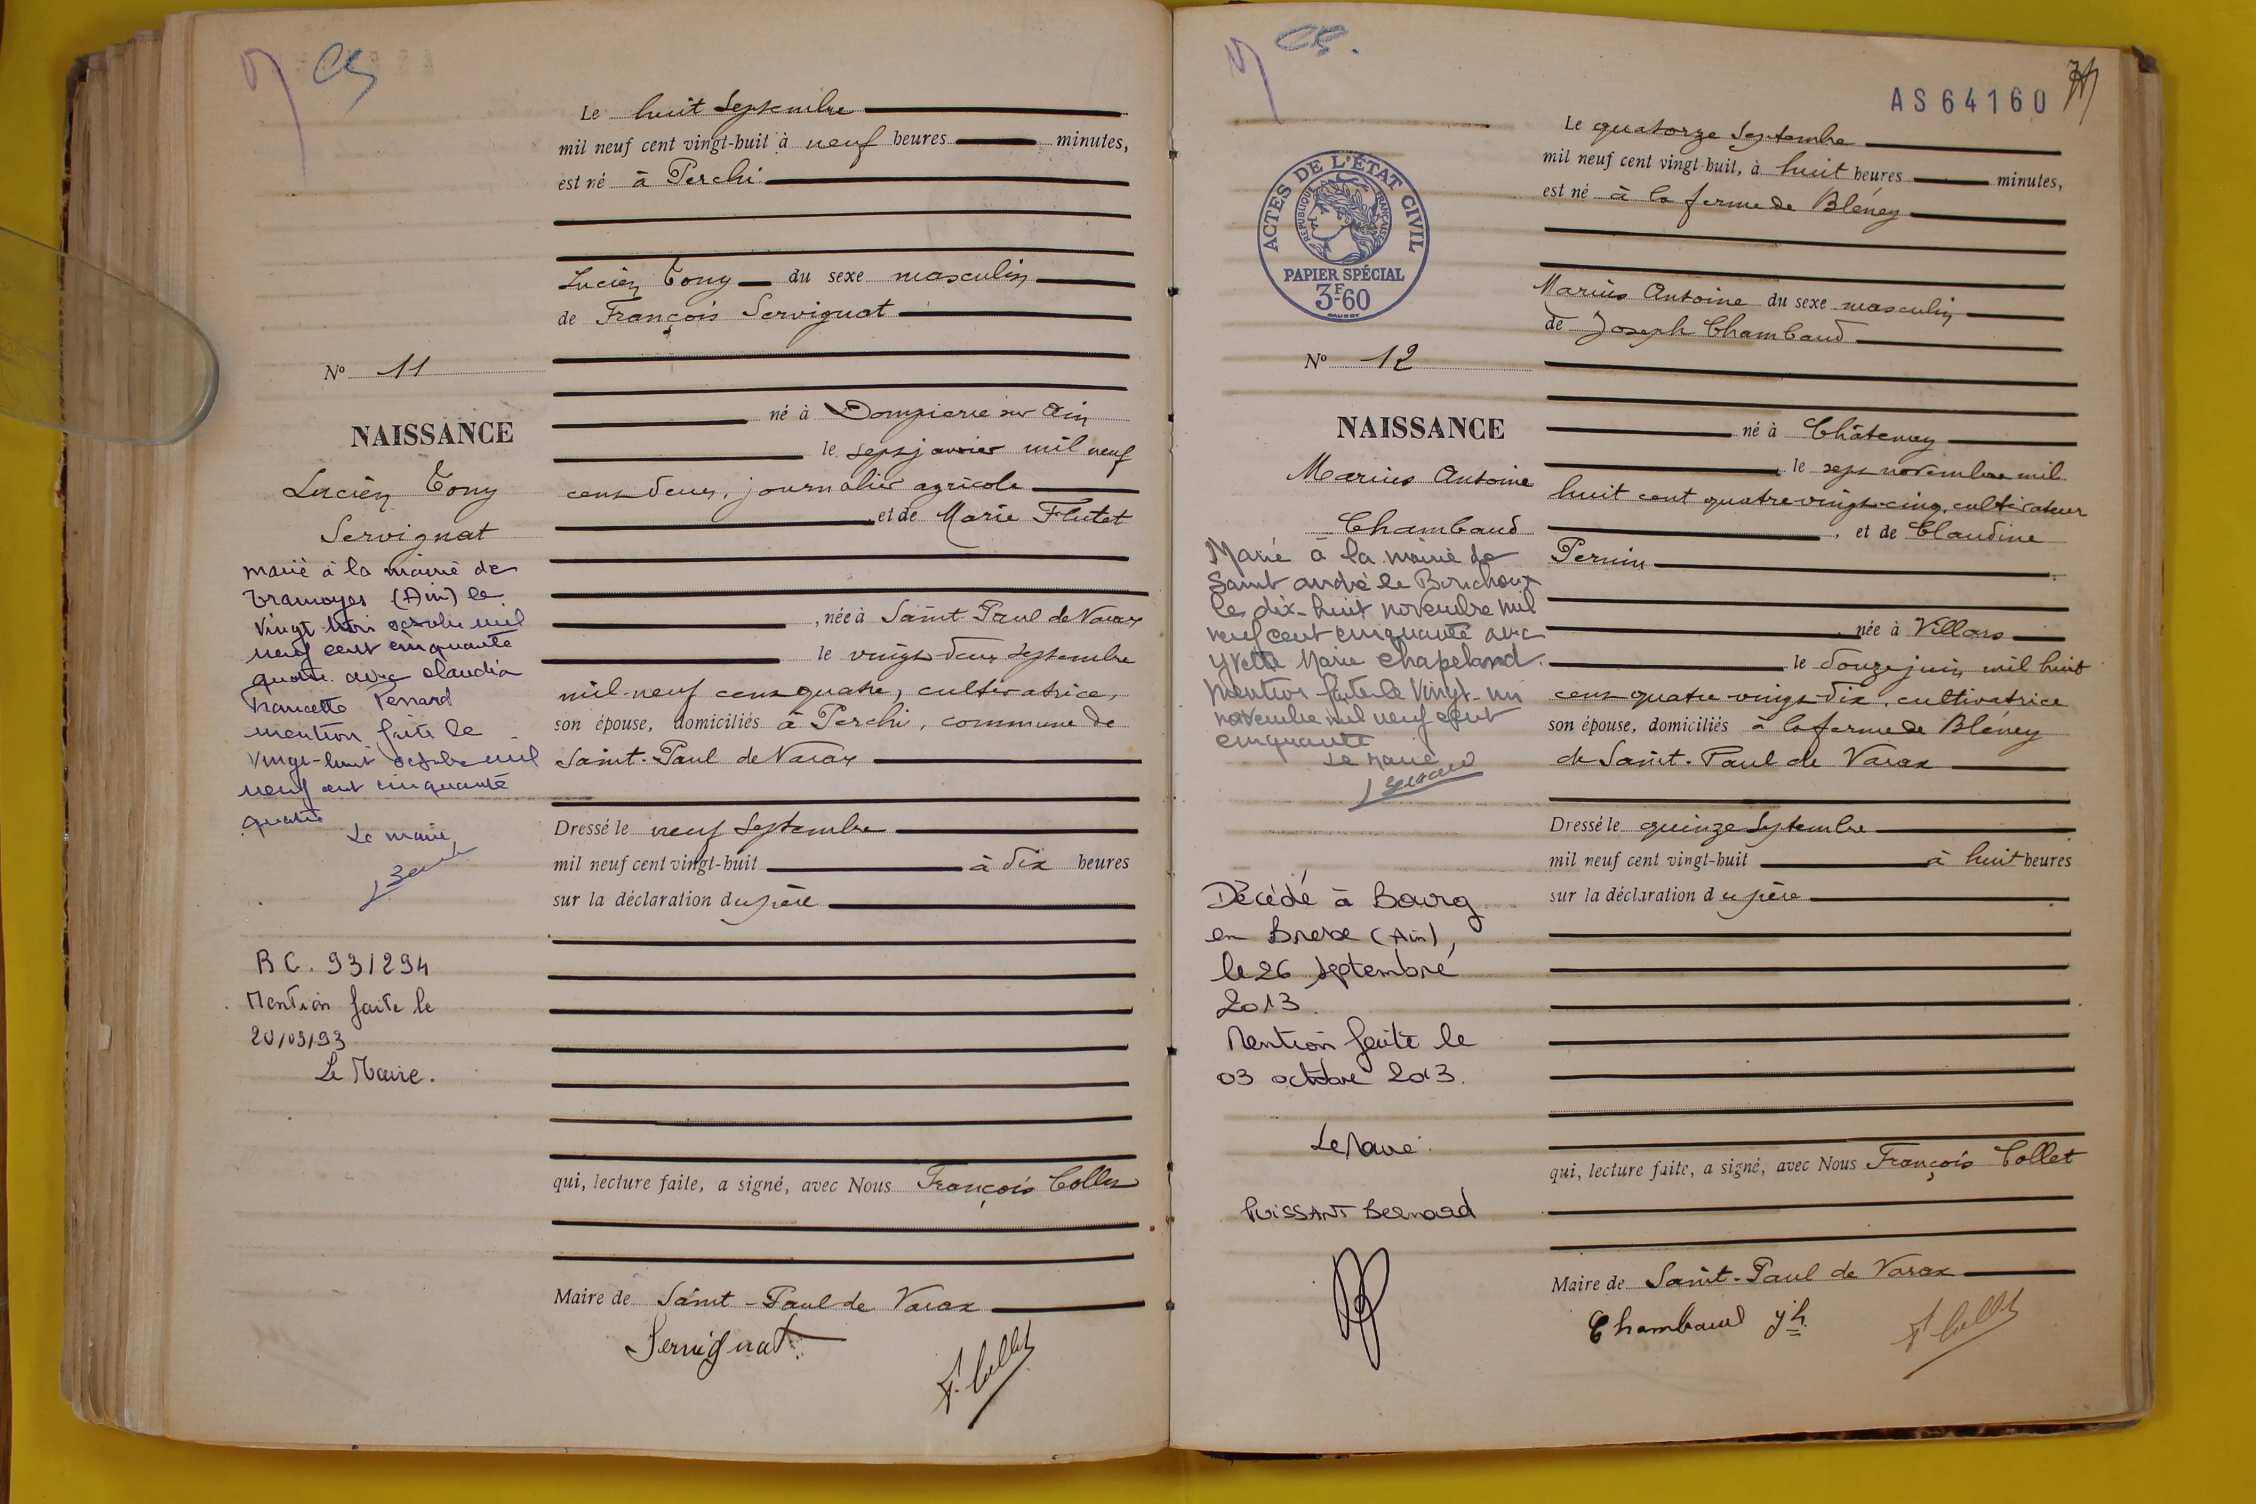 Le huit Septembre
mil neuf cent vingt-huit à neuf heures minutes,
est né à Perchi
Lucien Tony du sexe masculin
de François Servignat
N° 11
né à Dompierre sur Ain
NAISSANCE
le sept janvier mil neuf
Lucien Tony
cent deux, journalier agricole
et de Marie Flutet
Servignat
marié à la mairie de
Tramoyes (Ain) le
vingt trois octobre mil
neuf cent cinquante
quatre avec Claudia
Francette Penard
mention faite le
vingt-huit octobre mil
neuf cent cinquante
quatre
Le maire
née à Saint Paul de Varax
le vingt deux septembre
mil neuf cent quatre, cultivatrice,
son épouse, domiciliés à Perchi, commune de
Saint-Paul de Varax
Dressé le neuf Septembre
mil neuf cent vingt-huit à dix heures
sur la déclaration du père
R C. 93/294
Mention faite le
20/03/93
Le Maire.
qui, lecture faite, a signé, avec Nous François Collet
Maire de Saint-Paul de Varax
Servignat
F. Collet
AS64160
Le quatorze Septembre
mil neuf cent vingt-huit, à huit heures minutes,
est né à la ferme de Bléney
ACTES DE L'ÉTAT CIVIL
RÉPUBLIQUE FRANÇAISE
PAPIER SPÉCIAL
3F-60
Marius Antoine du sexe masculin
de Joseph Chambaud
N° 12
né à Châtenay
NAISSANCE
le sept novembre mil
Marius Antoine
huit cent quatre vingt-cinq, cultivateur
Chambaud
et de Claudine
Pernin
Marié à la mairie de
Saint andré le Bouchoux
le dix-huit novembre mil
neuf cent cinquante avec
Yvette Marie Chapeland.
Mention faite le vingt-un
novembre mil neuf cent
cinquante
Le Maire
née à Villars
le douze juin mil huit
cent quatre vingt dix, cultivatrice
son épouse, domiciliés à la ferme de Bléney
de Saint-Paul de Varax
Dressé le quinze Septembre
mil neuf cent vingt-huit à huit heures
sur la déclaration du père
Décédé à Bourg
en Bresse (Ain),
le 26 septembre
2013.
Mention faite le
03 octobre 2013.
Le Maire
PUISSANT Bernard
qui, lecture faite, a signé, avec Nous François Collet
Maire de Saint-Paul de Varax
Chambaud Jh
F. Collet